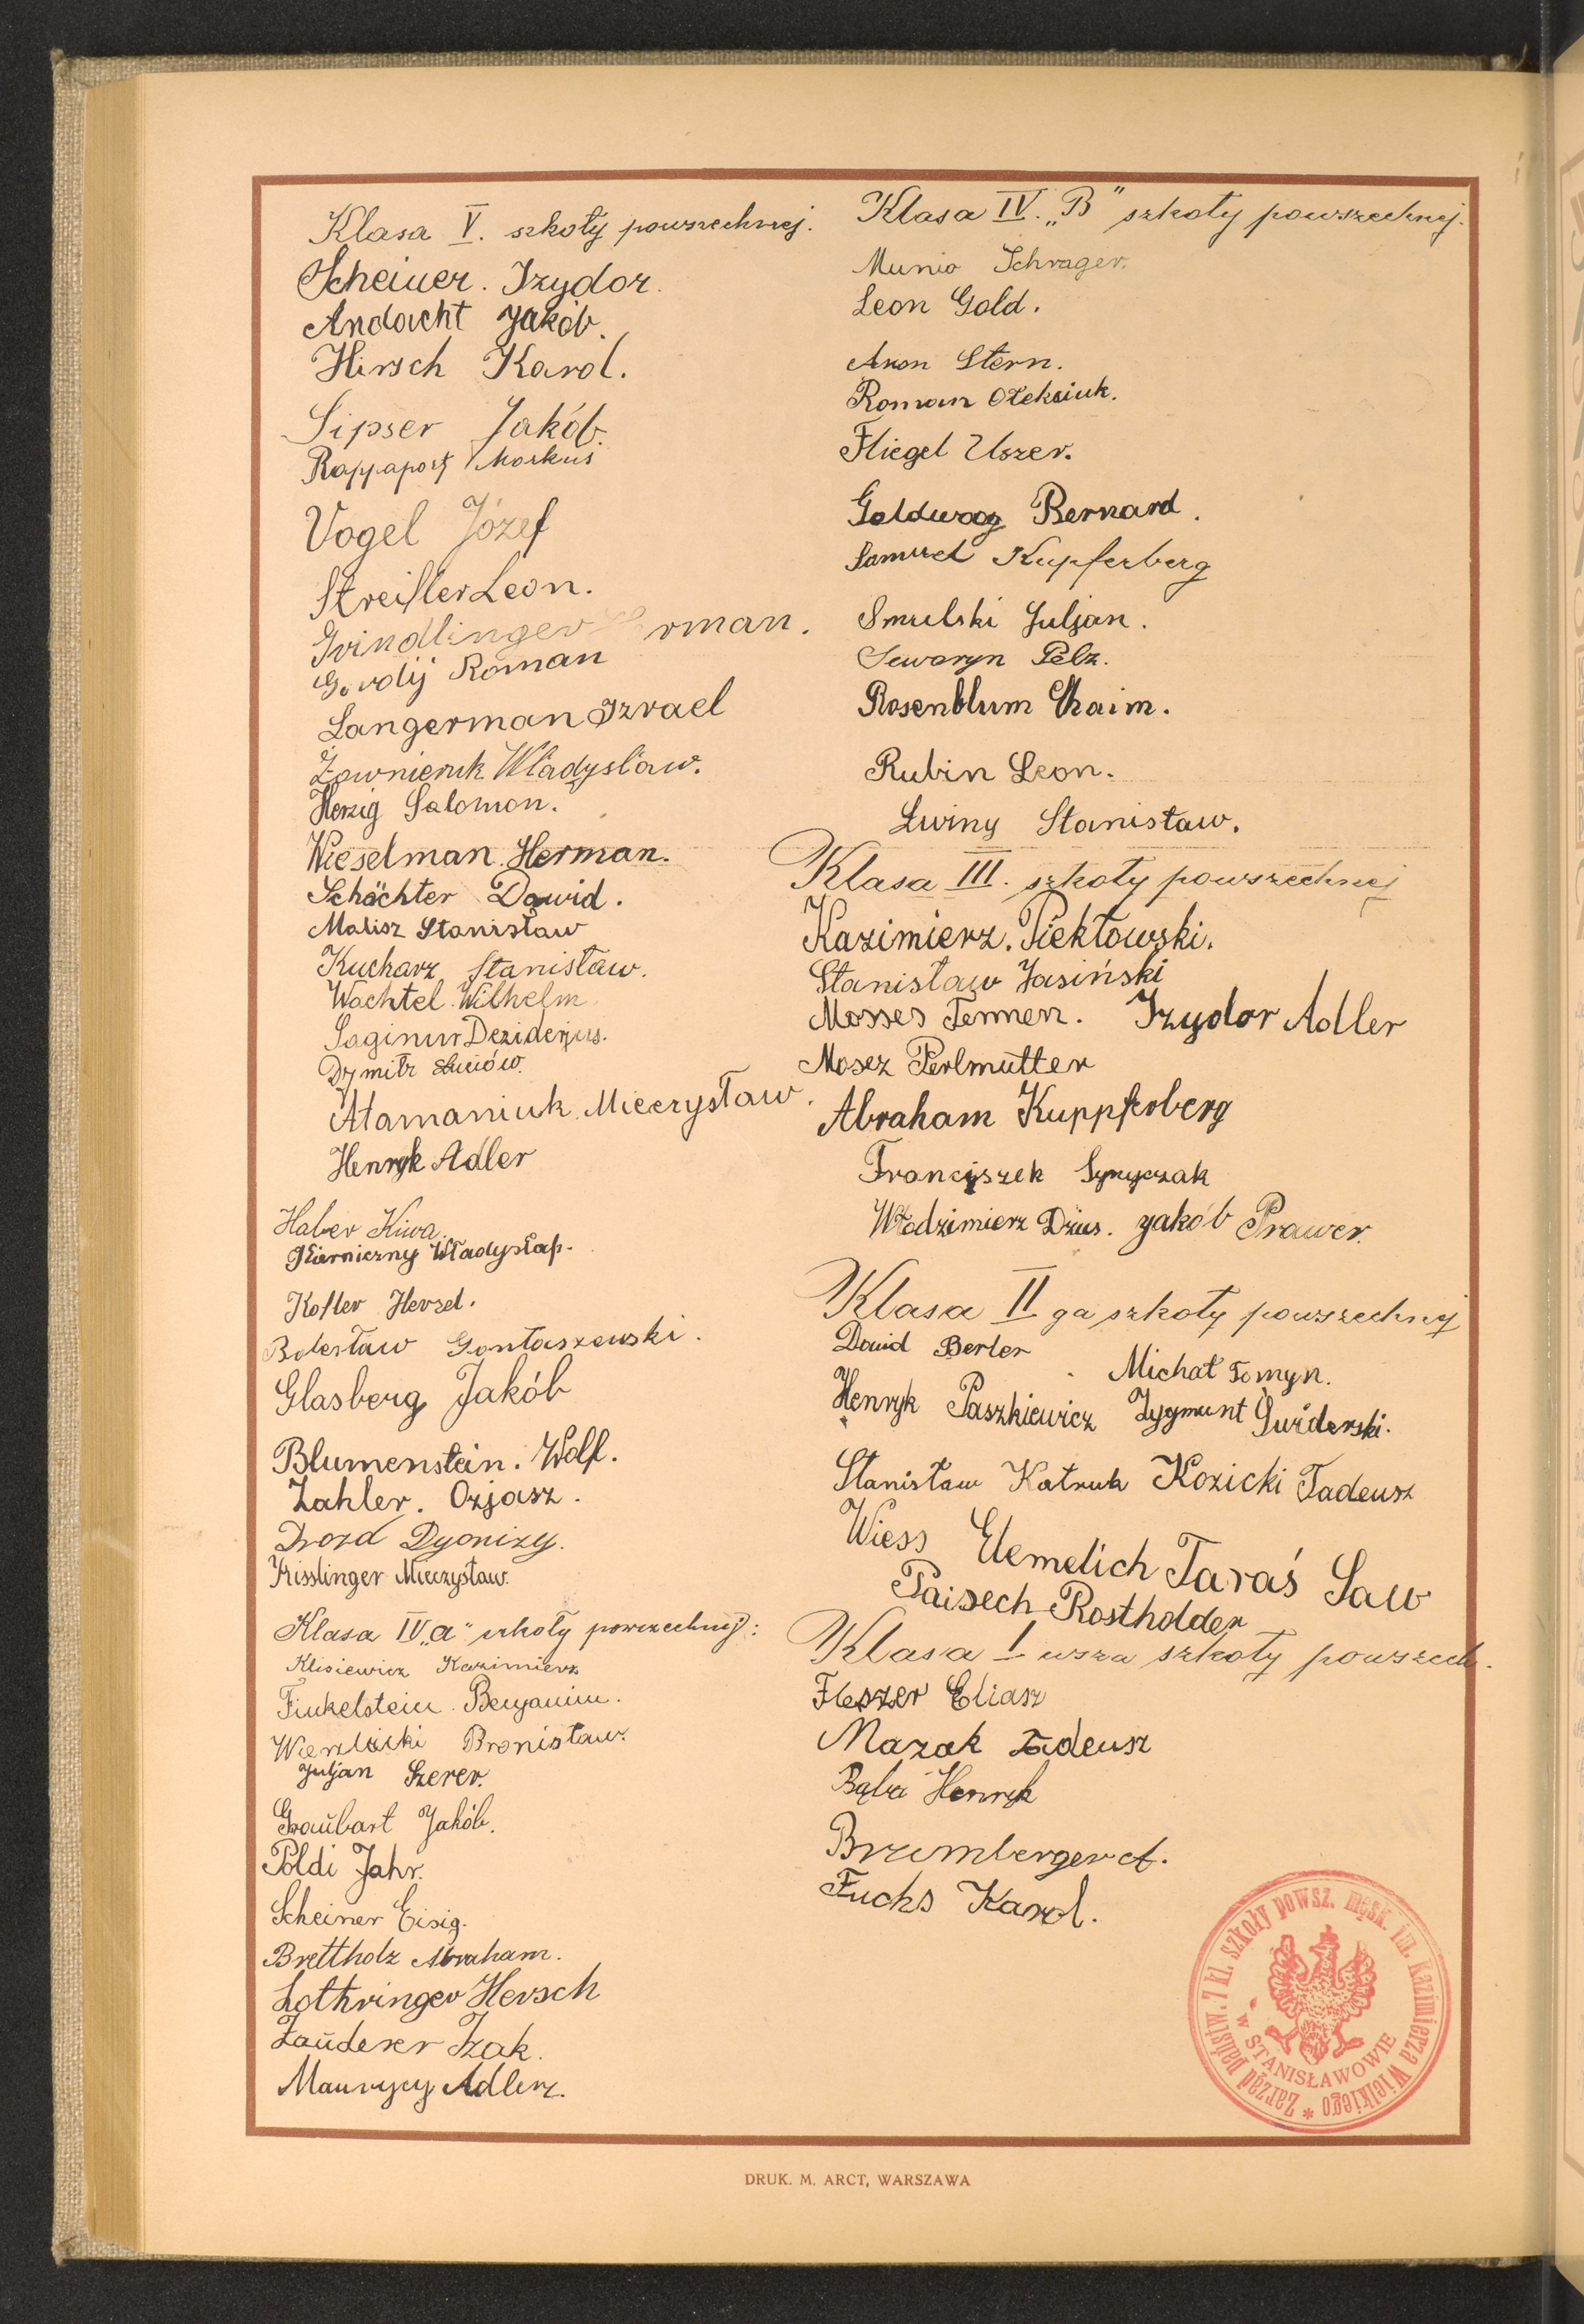 Klasa V. szkoły powszechnej.
Scheiner. Izydor.
Andacht Jakób.
Hirsch Karol.
Sipser Jakób.
Rappaport Markus
Vogel Józef
Streifler Leon.
Grindlinger rman.
Gordij Roman
Langerman Izrael
Żownieruk Władysław.
Herzig Salomon.
Wieselman Herman.
Schächter Dawid.
Malisz Stanisław
Kucharz Stanisław.
Wachtel Wilhelm
Saginur Deziderjus.
Dymitr
Atamaniuk Mieczysław.
Henryk Adler
Haber Kiwa.
Kierniczny Władysław.
Kofler Herzel.
Bolesław Gontaszewski.
Glasberg Jakób
Blumenstein. Wolf.
Zahler. Ozjasz.
Drozd Dyonizy.
Krisslinger Mieczysław.
Klasa IV „a" szkoły powszechnej:
Klisiewicz Kazimierz
Finkelstein Benjamin.
Wierzbicki Bronisław.
Juljan Szerer.
Graubart Jakób.
Poldi Jahr.
Scheiner Eisig.
Brettholz Abraham.
Lothringer Hersch
Zauderer Izak.
Maurycy Adler.
Klasa IV. „B" szkoły powszechnej.
Munio Schrager.
Leon Gold.
Aron Stern.
Roman Ołeksiuk.
Fliegel Uszer.
Goldwag Bernard.
Samuel Kupferberg
Smulski Juljan.
Seweryn Pelz.
Rosenblum Chaim.
Rubin Leon.
Lwiny Stanisław.
Klasa III. szkoły powszechnej
Kazimierz. Piekłowski.
Stanisław Jasiński
Mosses Tennen. Izydor Adler
Mosez Perlmutter
Abraham Kuppferberg
Franciszek Synyczak
Włodzimierz Dżus. Jakób Prawer.
Klasa II ga szkoły powszechnej
Dawid Berler Michał Fomyn.
Henryk Paszkiewicz Zygmunt Świderski.
Stanisław Katruk Kozicki Tadeusz
Wiess Elemelich Taraś Saw
Paisech Rostholder
Klasa I wsza szkoły powszech.
Fleszer Eliasz
Mazak Tadeusz
Bąba Henryk
Brumberger A.
Fuchs Karol.
Zarząd państw. 7 kl. szkoły powsz. męsk. im. Kazimierza Wielkiego *
w STANISŁAWOWIE
DRUK. M. ARCT, WARSZAWA